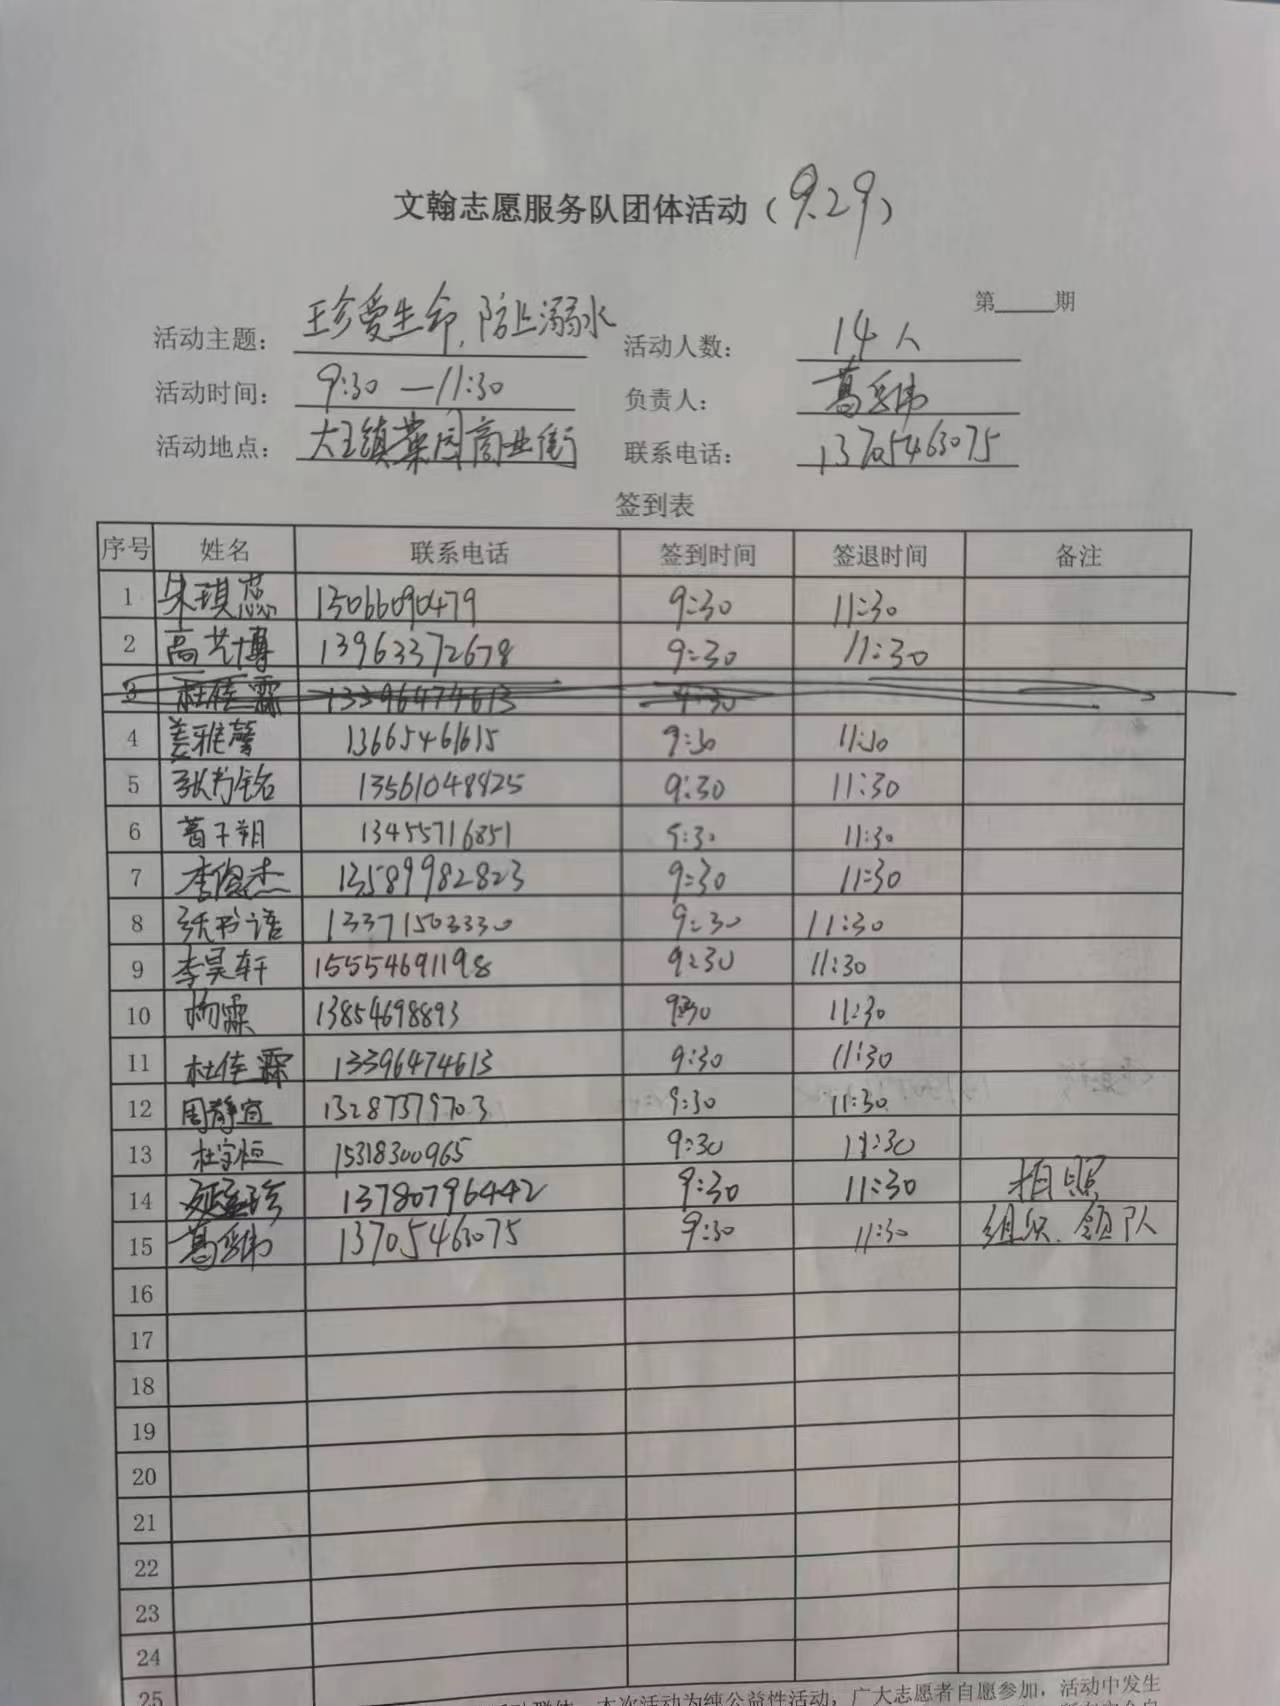 文翰志愿服务队团体活动（9.29）
第____期
活动主题：珍爱生命，防止溺水 活动人数：14人
活动时间：9:30—11:30 负责人：葛
活动地点：大王镇菜园商业街 联系电话：13705463075
签到表
序号 姓名 联系电话 签到时间 签退时间 备注
1 朱琪蕊 13066090479 9:30 11:30
2 高艺博 13963372678 9:30 11:30
3 杜佳霖 13396474613 9:30
4 姜雅馨 13665461615 9:30 11:30
5 张书铭 13561048825 9:30 11:30
6 葛子朔 13455716851 9:30 11:30
7 李俊杰 13589982823 9:30 11:30
8 张书语 13371503330 9:30 11:30
9 李昊轩 15554691198 9:30 11:30
10 杨霖 13854698893 9:30 11:30
11 杜佳霖 13396474613 9:30 11:30
12 周静宜 13287379703 9:30 11:30
13 杜宇恒 15318300965 9:30 11:30
14 13780796442 9:30 11:30 拍照
15 葛 13705463075 9:30 11:30 组织、领队
16
17
18
19
20
21
22
23
24
25
本次活动为纯公益性活动，广大志愿者自愿参加，活动中发生